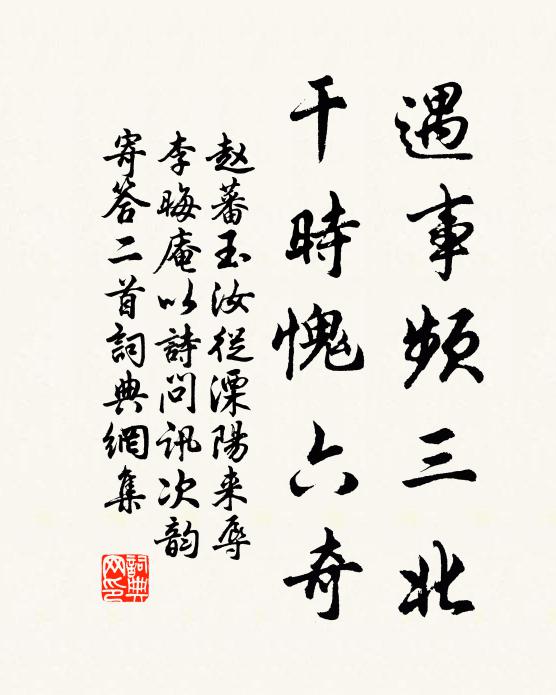 遇事頻三北
干時愧六奇
赵蕃玉汝從溧陽来辱
李晦庵以詩問訊次韵
寄答二首詞典網集
詞典网印